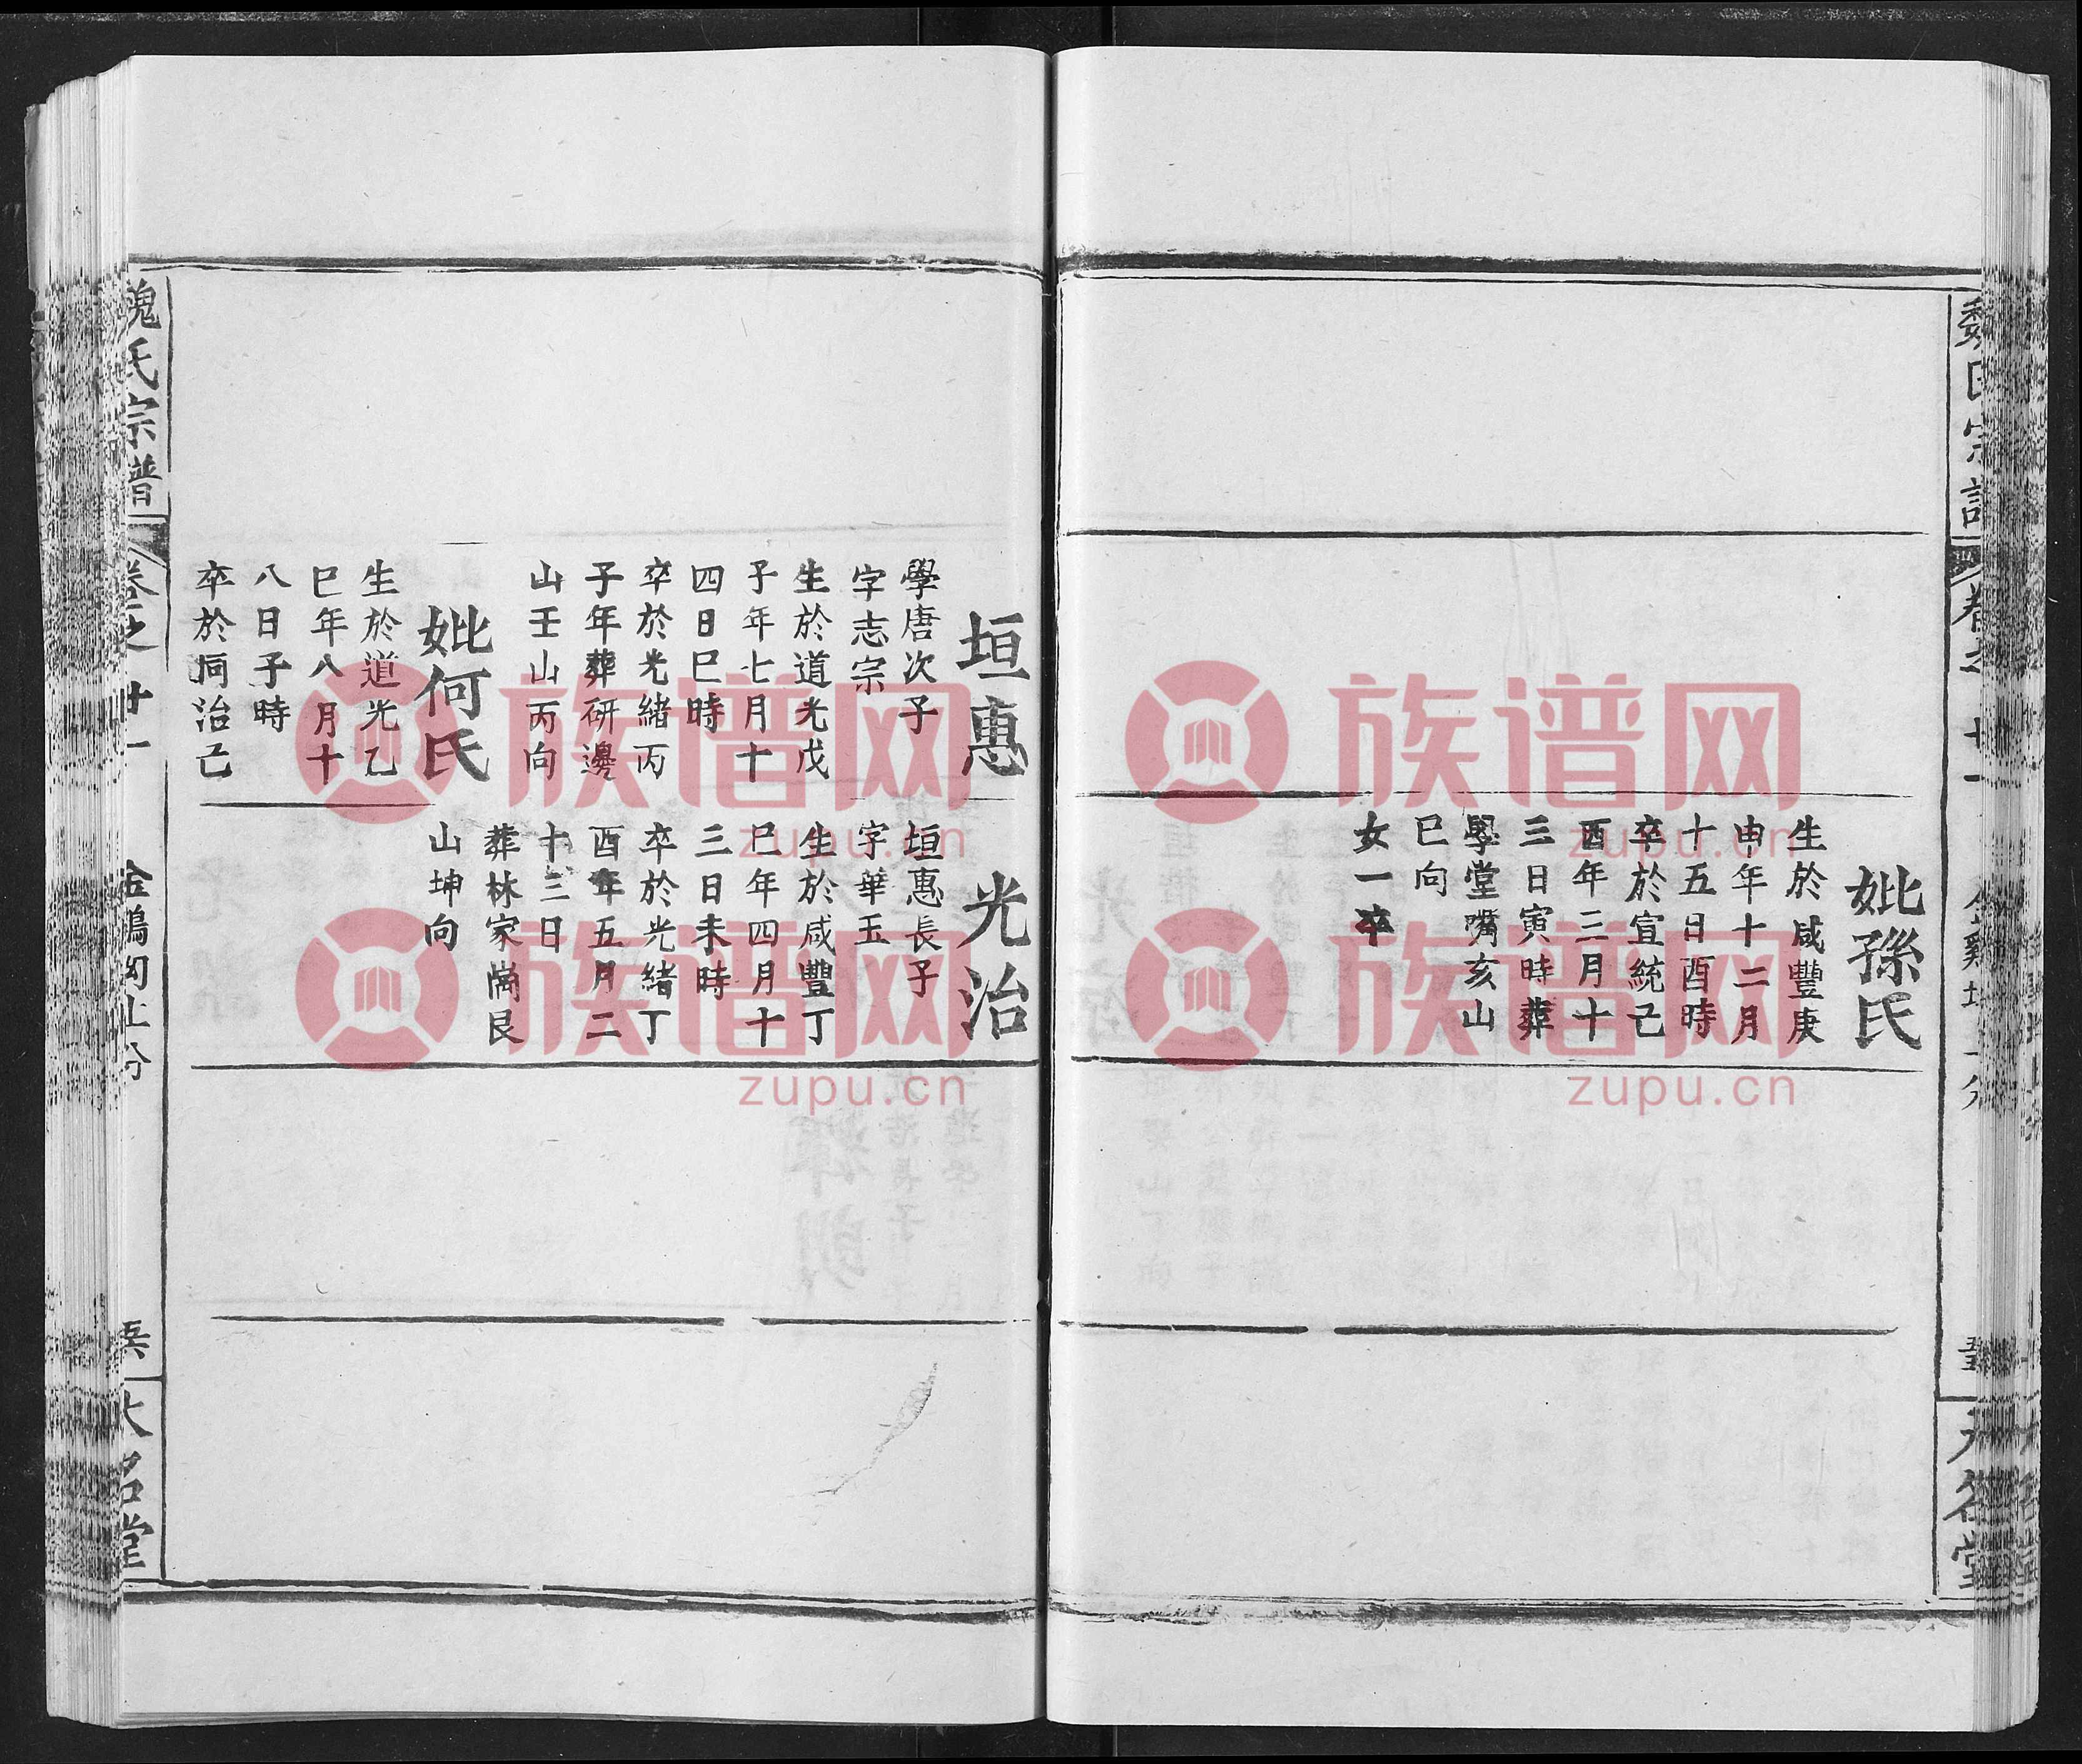 妣孫氏
生於咸豐庚
申年十二月
十五日酉時
卒於宣統己
酉年三月十
三日寅時葬
學堂嘴亥山
巳向
女一卒
垣惠
學唐次子
字志宗
生於道光戊
子年七月十
四日巳時
卒於光緒丙
子年葬研邊
山壬山丙向
妣何氏
生於道光乙
巳年八月十
八日子時
卒於同治己
光治
垣惠長子
字華玉
生於咸豐丁
巳年四月十
三日未時
卒於光緒丁
酉年五月二
十三日
葬林家崗艮
山坤向
魏氏宗譜
卷之廿一
大名堂
族谱网
zupu.cn
族谱网
zupu.cn
族谱网
zupu.cn
族谱网
zupu.cn